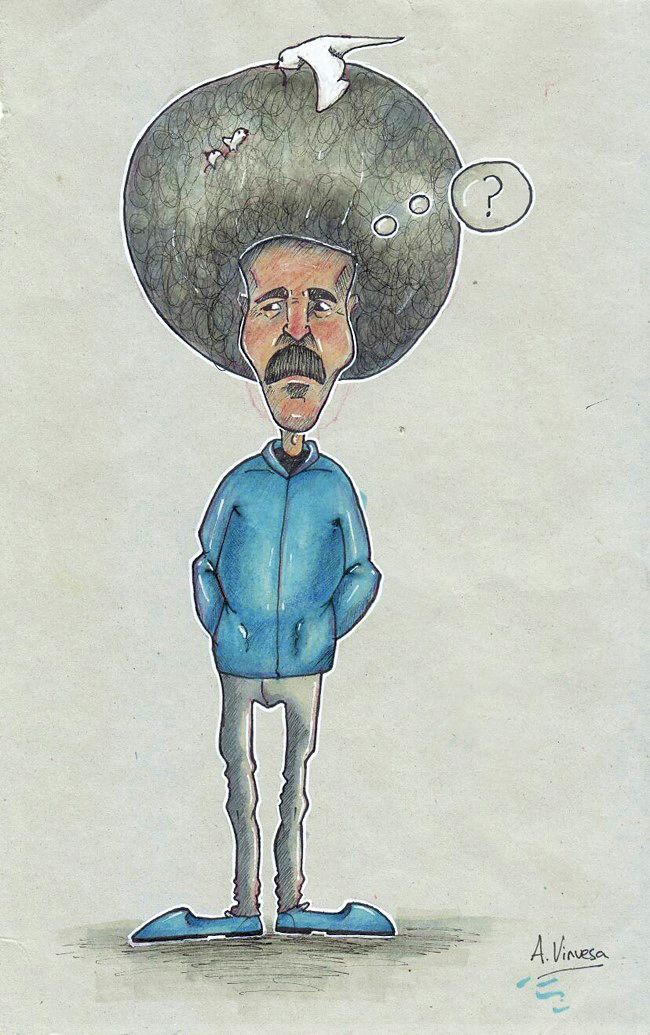 ?
A. Vinuesa